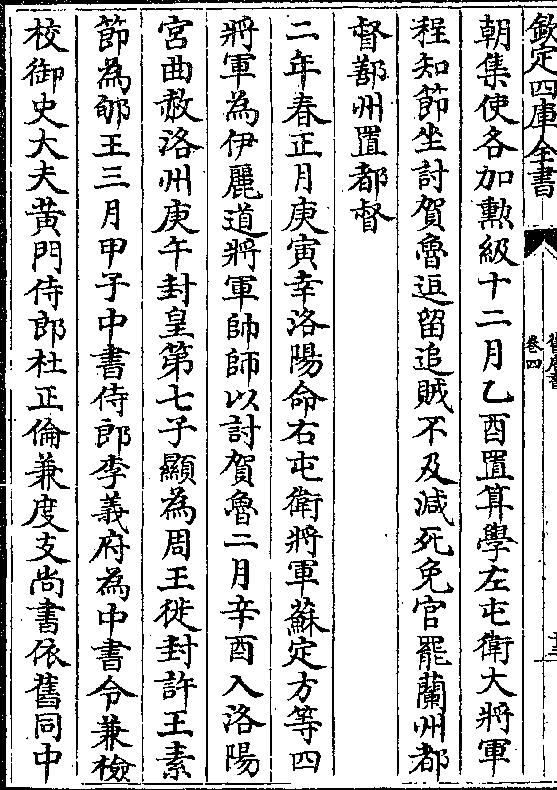 欽定四庫全書
卷四
朝集使各加勲級十二月乙酉置算學左屯衛大將軍
程知節坐討賀魯逗留追賊不及減死免官罷蘭州都
督鄯州置都督
二年春正月庚寅幸洛陽命右屯衛將軍蘇定方等四
將軍為伊麗道將軍帥師以討賀魯二月辛酉入洛陽
宮曲赦洛州庚午封皇第七子顯為周王徙封許王素
節為郇王三月甲子中書侍郎李義府為中書令兼檢
校御史大夫黄門侍郎杜正倫兼度支尚書依舊同中